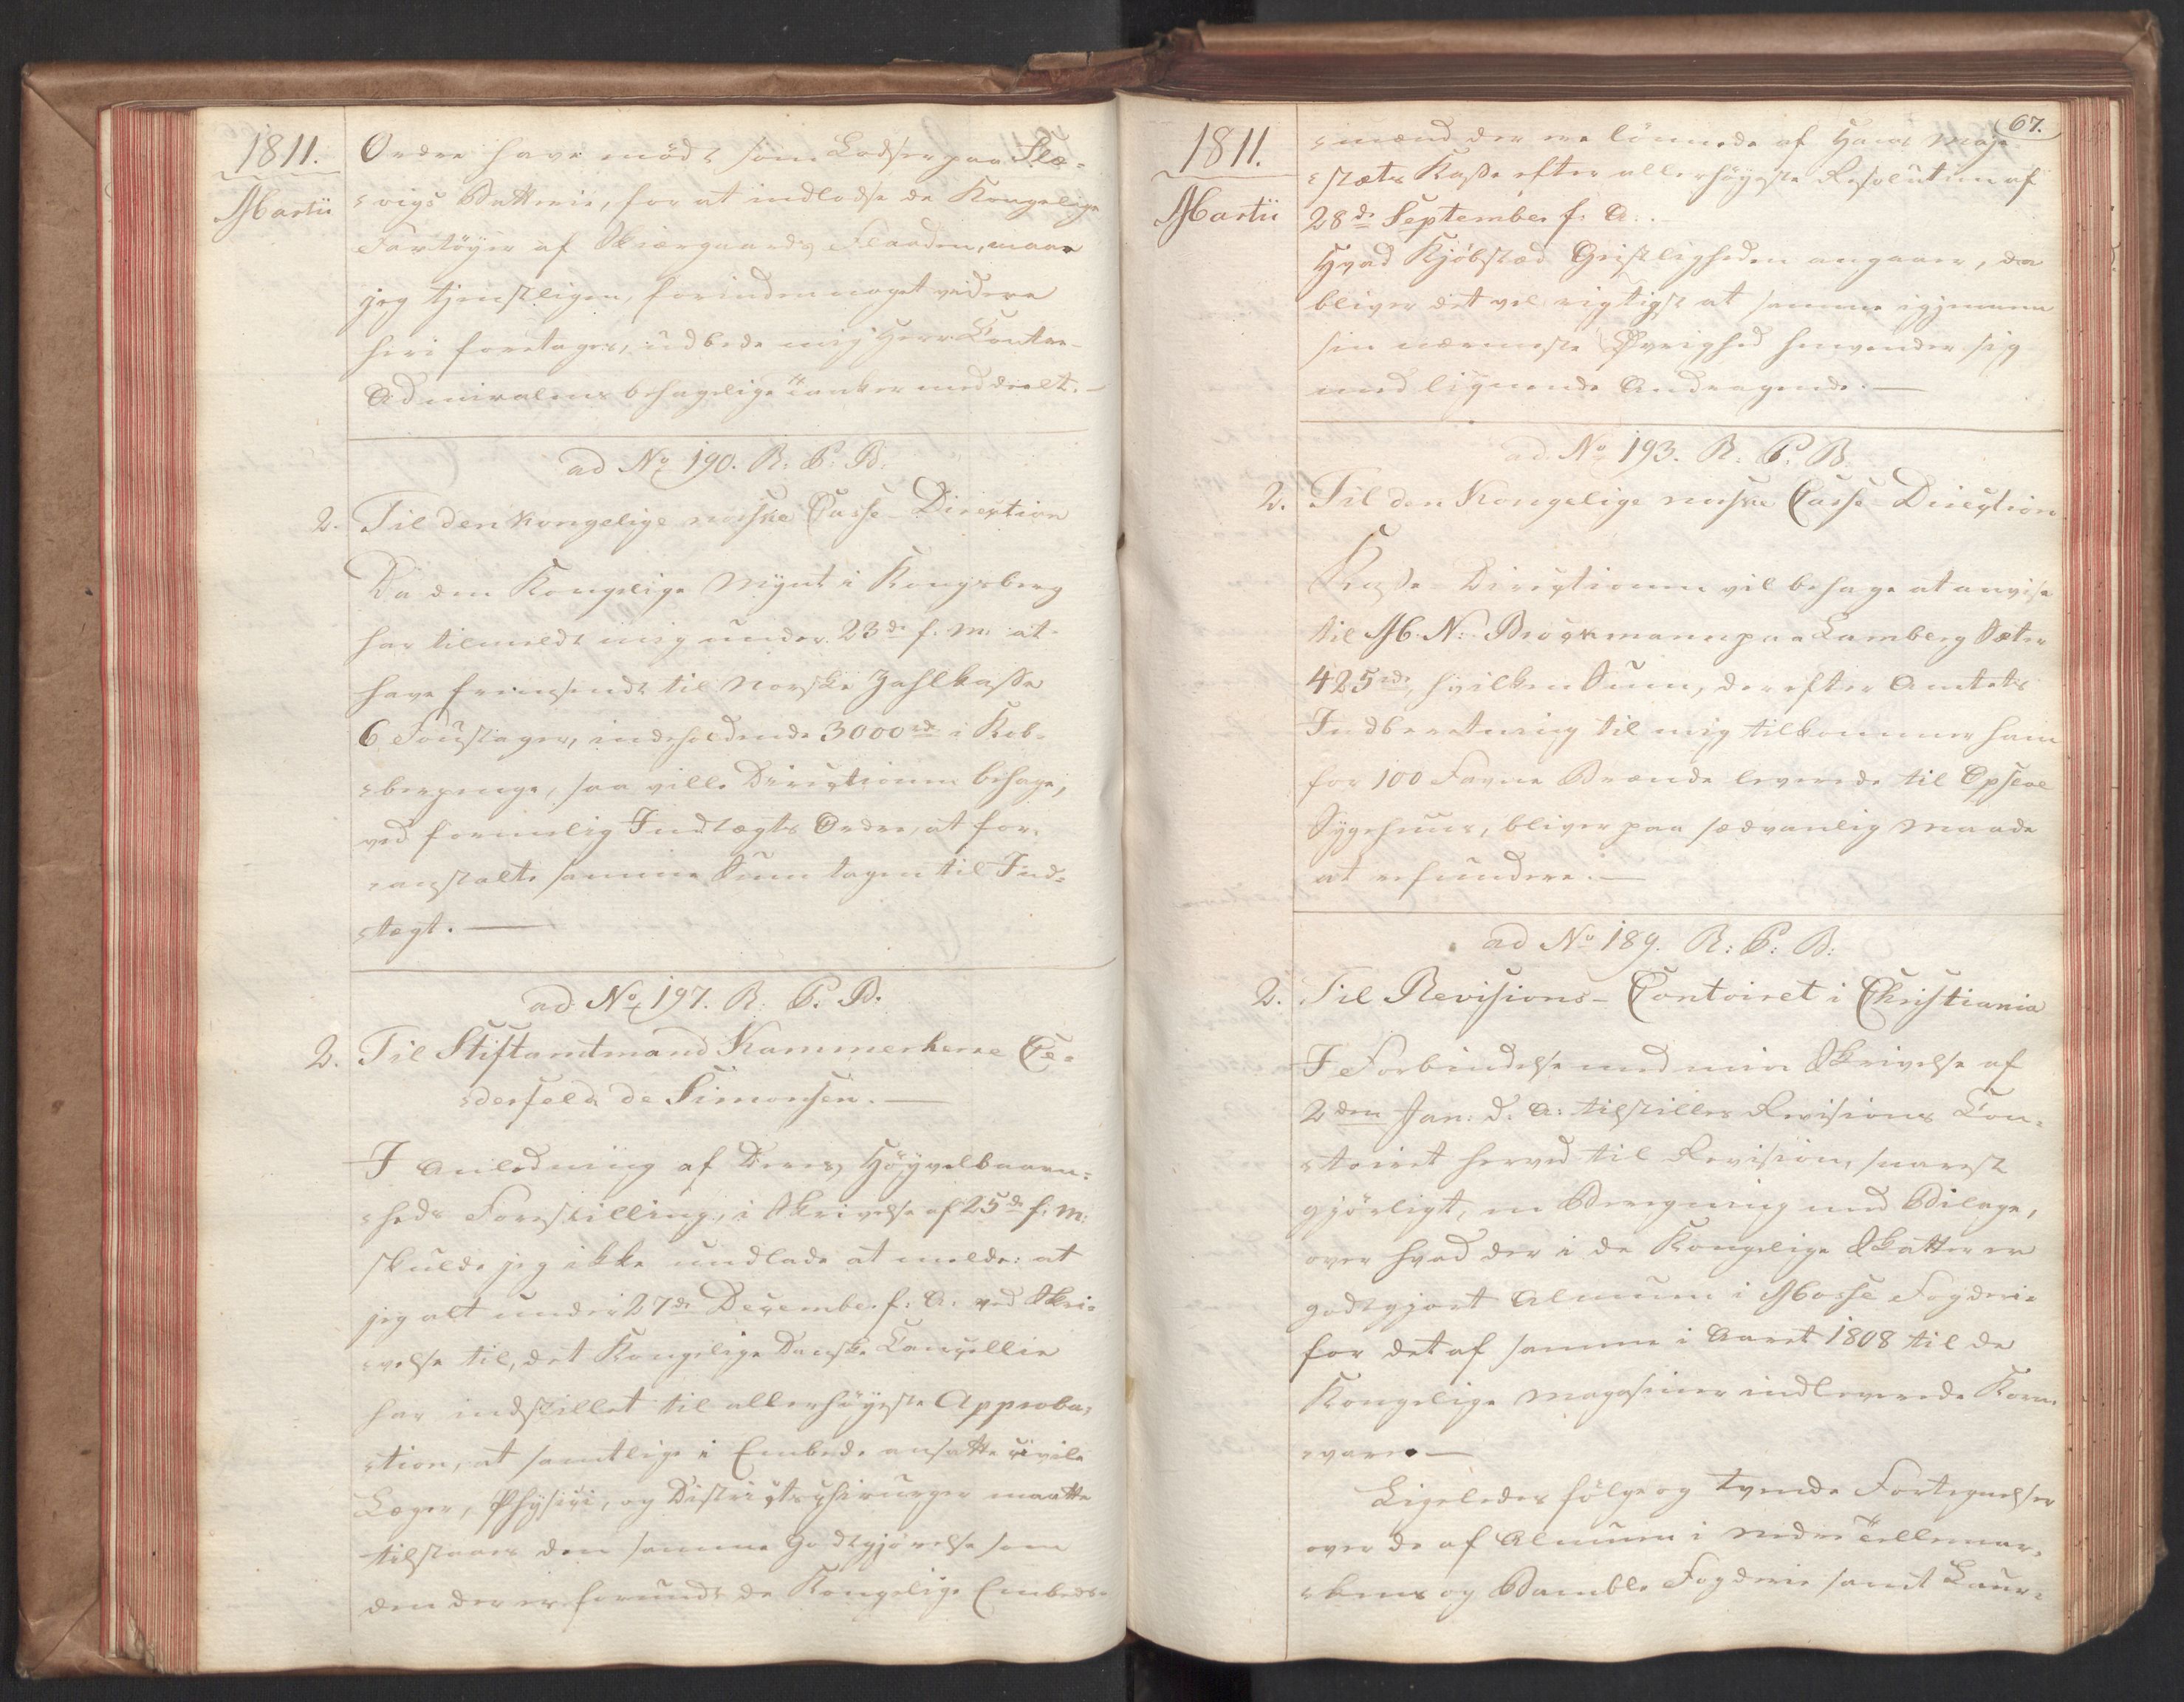 1811.
Martii
Ordre have mödt som Lodser paa Slæ-
vigs Batterie, for at indlodse de Kongelige
Fartöyer af Skiærgaards Flaaden, maae
jeg tjenstligen, forinden noget videre
heri foretages, udbede mig Herr Contre-
Admiralens behagelige Tanker meddeelt. —
ad No 190. R: C: B:
2. Til den kongelige norske Casse-Direction
Da den Kongelige Mynt i Kongsberg
har tilmeldt mig under 23de f. M. at
have fremsendt til Norske Zahlkasse
6 Foustager, indeholdende 3000 rd i Kob-
berpenge, saa ville Directionen behage,
ved formelig Indtægts Ordre, at for-
anstalte samme Sum tagen til Ind-
tægt. —
ad No 197. R. C. B.
2. Til Stiftamtmand Kammerherre Ce-
dersfeld de Simonsen. —
I Anledning af Deres Höyvelbaaren-
heds Forestilling, i Skrivelse af 25de f. M.
skulde jeg ikke undlade at melde: at
jeg alt under 27de December f: A: ved Skri-
velse til det Kongelige Danske Cancellie
har indstillet til allerhöyeste Approba-
tion, at samtlige i Embede ansatte civile
Læger, Physici, og Districtschirurger maatte
tilstaaes den samme Godtgjörelse som
den der er forundt de Kongelige Embeds-
67.
1811.
Martii
mænd der ere lönnede af Hans Maje-
stæts Kasse efter allerhöyeste Resolution af
28de September f: A: .
Hvad Kjöbstæd Geistligheden angaaer, da
bliver det vel rigtigst at samme igjennem
sin nærmeste Övrighed henvender sig
med lignende Andragende. —
ad No 193. R. C. B.
2. Til den Kongelige norske Casse Direction
Kasse-Directionen vil behage at anvise
til M. N: Bröckmann paa Lamberg Sæter
425 rd, hvilken Sum, der efter Amtets
Indberetning til mig tilkommer ham
for 100 Favne Brænde leverede til Opsloe
Sygehuus, bliver paa sædvanlig Maade
at refundere. —
ad No 189. R: C: B:
2. Til Revisions-Contoiret i Christiania
I Forbindelse med min Skrivelse af
2den Jan: d. A: tilstilles Revisions Con-
toiret herved til Revision, snarest
gjörligt, en Beregning med Bilage,
over hvad der i de Kongelige Skatter er
godtgjort Almuen i Mosse Fogderie
for det af samme i Aaret 1808 til de
Kongelige Magasiner indleverede Korn-
vare. —
Ligeledes fölge og tvende Fortegnelser
over de af Almuen i Nedre Tellemar-
kens og Bamble Fogderie samt Laur-